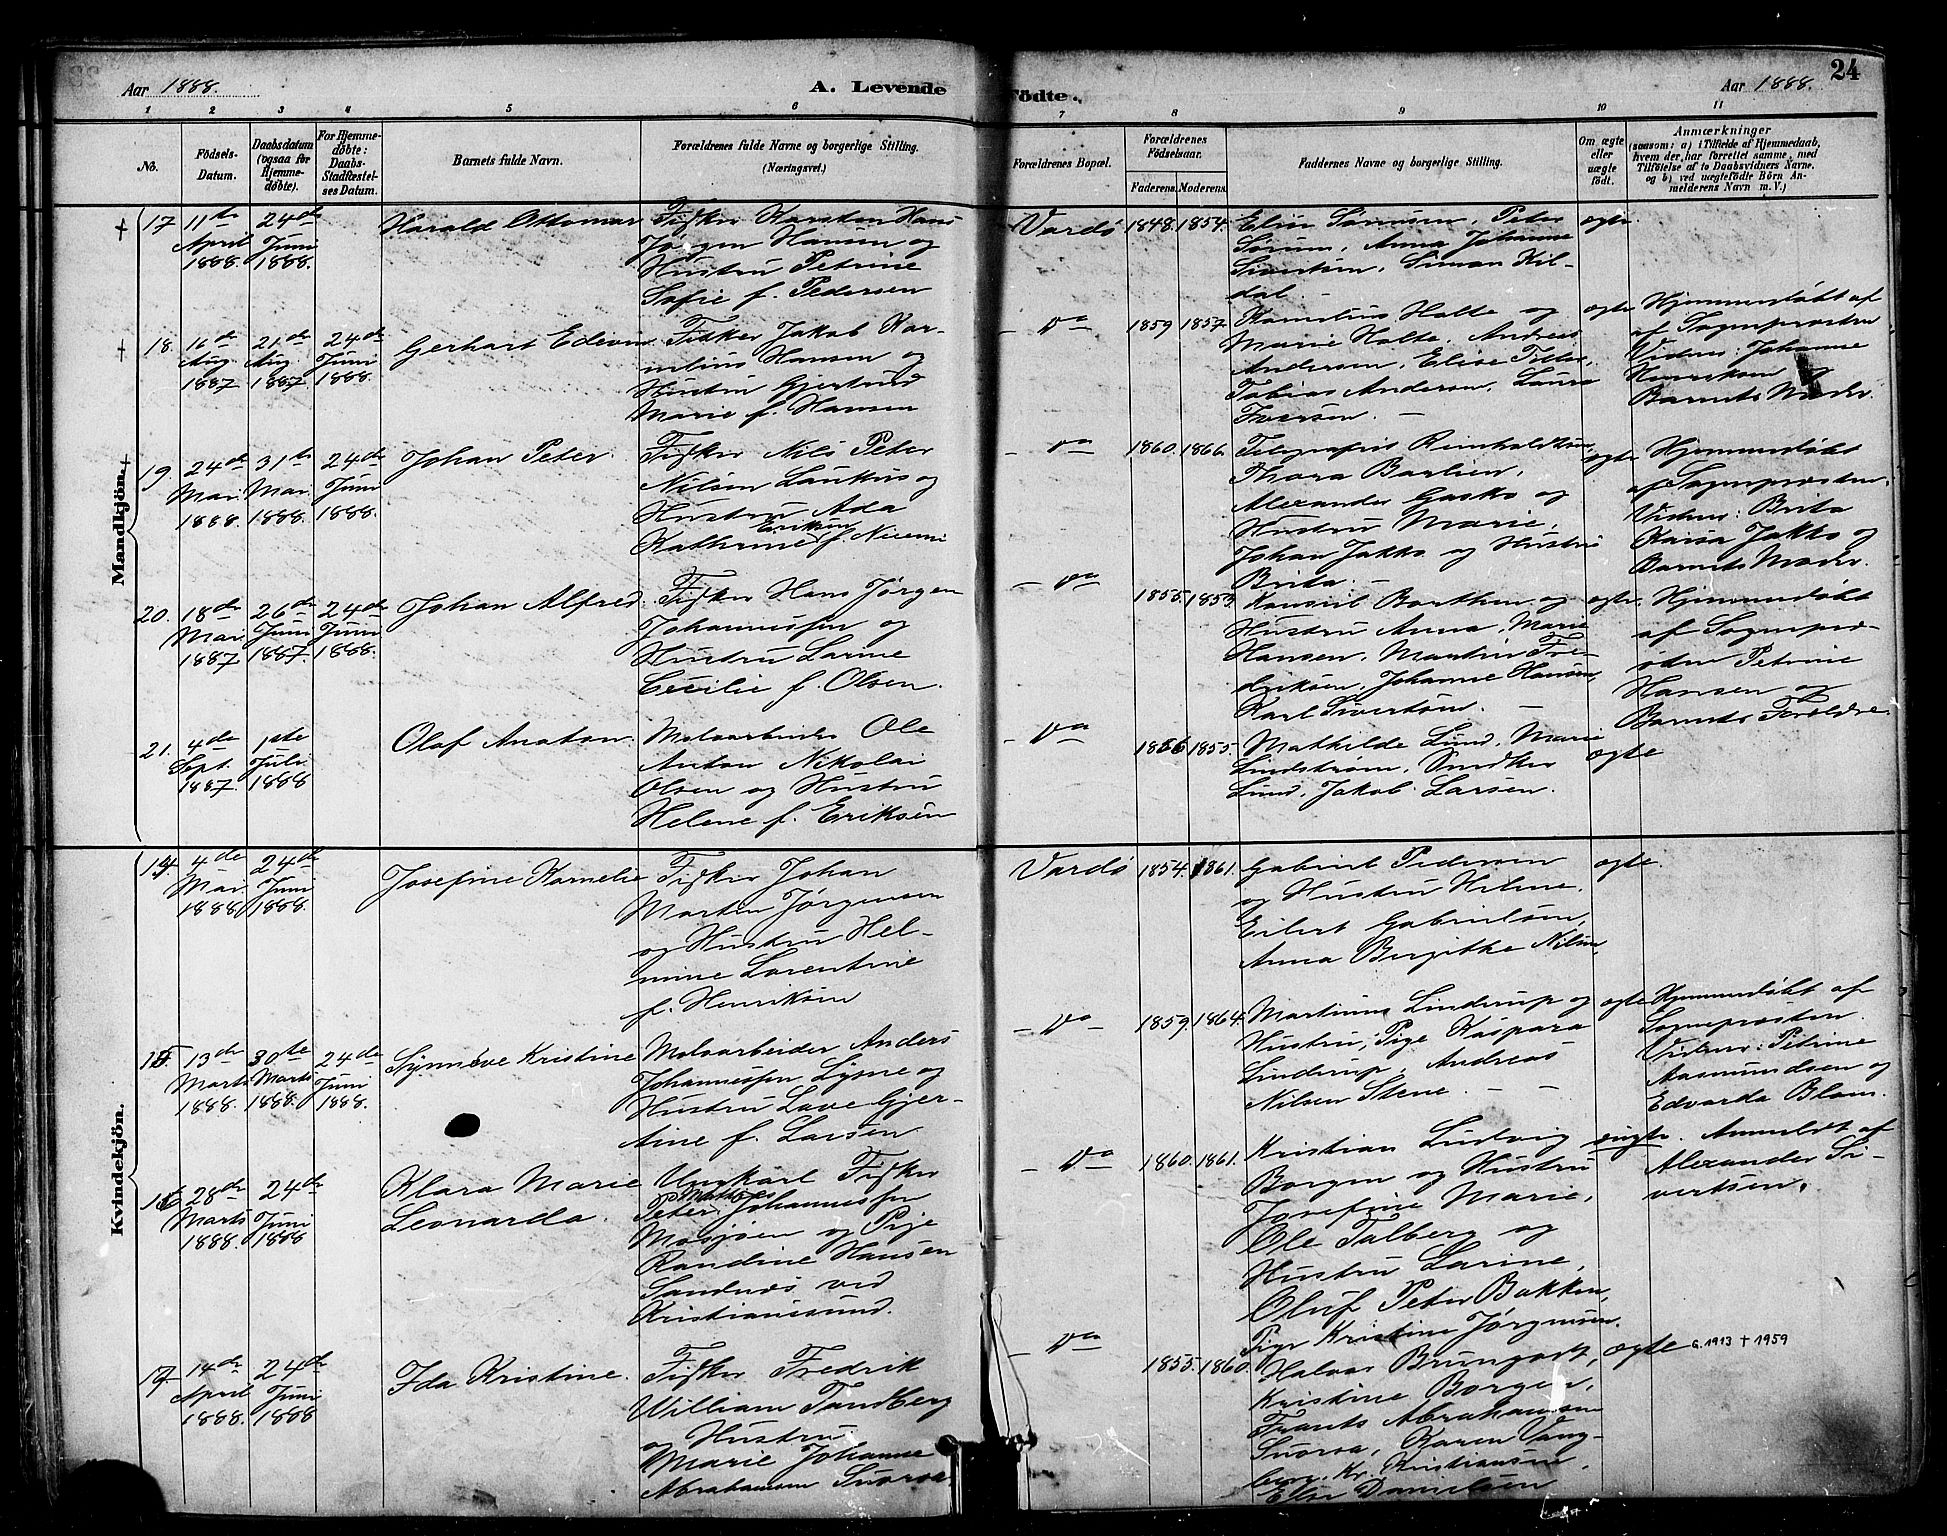 Aar 1888.
A. Levende
Fødte.
Aar 1888.
24
1 2 3 4 5 6 7 8 9 10 11
No.
Fødsels-
Datum.
Daabsdatum
(ogsaa for
Hjemme-
døbte).
For Hjemme-
døbte:
Daabs-
Stadfæstel-
ses Datum.
Barnets fulde Navn.
Forældrenes fulde Navne og borgerlige Stilling.
(Næringsvei.)
Forældrenes Bopæl.
Forældrenes
Fødselsaar.
Faderens.
Moderens.
Faddernes Navne og borgerlige Stilling.
Om ægte
eller
uægte
født.
Anmærkninger
(saasom: a) i Tilfælde af Hjemmedaab,
hvem der har forrettet samme, med
Tilføielse af to Daabsvidners Navne.
og b) ved uægtefødte Börn An-
melderens Navn m. V.)
Mandkjön.
17
11te
April
1888.
24de
Juni
1888.
Harald Ottomar
Fisker Karsten Hans
Jørgen Hansen og
Hustru Petrine
Sofie f. Pedersen
Vardö
1848.
1854.
Elise Sørensen, Peter
Sørum, Anna Johanne
Sivertsen, Simon Kil-
dal.
ægte
18.
16de
Aug.
1887
21de
Aug.
1887
24de
Juni
1888.
Gerhart Edevin
Fisker Jakob Kor-
nelius Hansen og
Hustru Gjertrud
Marie f. Hansen
Do
1859
1857.
Kornelius Holte og
Marie Holte, Andreas
Andersen, Elise
Tobias Andersen, Laura
Iversen. —
ægte
Hjemmedøbt af
Sognepræsten
Vidner: Johanne
Henriksen og
Barnets Moder.
19.
24de
Mai.
1888
31te
Mai.
1888.
24de
Juni
1888.
Johan Peter
Fisker Nils Peter
Nilsen Laukus og
Hustru Ada
Eriksen
Kathrine f. Niemi
Do
1860.
1866.
Telegrafist Reinholdtsen,
Thora Barlien,
Alexander Gasko og
Hustru Marie,
Johan Jakko og Hustru
Brita. —
ægte
Hjemmedøbt
af Sognepræsten.
Vidner: Brita
Kaisa Jakko og
Barnets Moder.
20.
18de
Mai.
1887
26de
Juni
1887.
24de
Juni
1888.
Johan Alfred
Fisker Hans Jørgen
Johannessen og
Hustru Larine
Cecilie f. Olsen.
Do
1855.
1853.
Konsul Barthen og
Hustru Anna, Marie
Hansen, Martin Fre-
driksen, Johanne Hansen,
Karl Sivertsen. —
ægte
Hjemmedøbt
af Sognepræ-
sten Petrine
Hansen og
Barnets Forældre
21.
4de
Sept.
1887.
1ste
Juli
1888
Olaf Anaton.
Moloarbeider Ole
Anton Nikolai
Olsen og Hustru
Helene f. Eriksen
Do
1856
1855.
Mathilde Lund, Marie
Lindstrøm, Snedker
Lund, Jakob Larsen.
ægte
Kvindekjön.
14
4de
Mai.
1888
24de
Juni
1888.
Josefine Kornelie
Fisker Johan
Morten Jørgensen
og Hustru Hel-
mine Lorentine
f. Henriksen
Vardö
1854.
1861.
Gabriel Pedersen
og Hustru Helene,
Eilert Gabrielsen,
Anna Birgitte Nilsen,
ægte
15.
13de
Marts
1888.
30te
Marts
1888.
24de
Juni
1888.
Synnøve Kristine
Moloarbeider Anders
Johannessen Lysne og
Hustru Lave Gjer-
tine f. Larsen
Do
1859.
1864.
Martinus Linderup og
Hustru, Pige Kaspara
Linderup, Andreas
Nilsen Stene — —
ægte
Hjemmedøbt af
Sognepræsten.
Vidner: Petrine
Aasmundsen og
Edvarda Blom.
16
28de
Marts
1888.
24de
Juni
1888
Klara Marie
Leonarda.
Ungkarl Fisker
Mathias
Peter Johannessen
Mosjøen og Pige
Randine Hansen
Sandnes ved
Kristianssund.
Do
1860.
1861.
Kristian Ludvig
Borgen og Hustru
Josefine Marie,
Ole Talberg og
Hustru Larine,
Oluf Peter Bakken,
Pige Kristine Jørgensen.
uægte.
Anmeldt af
Alexander Si-
vertsen.
17
14de
April
1888.
24de
Juni
1888
Ida Kristine.
Fisker Fredrik
William Tandberg
og Hustru
Marie Johanne
Abrahamsen Suorsa
Do
1855.
1860.
Halvor Brungodt,
Kristine Borgen,
Frants Abrahamsen
Suorsa, Karen Vang-
berg, Kr. Kristiansen,
Else Danielsen
ægte
G. 1913 + 1959